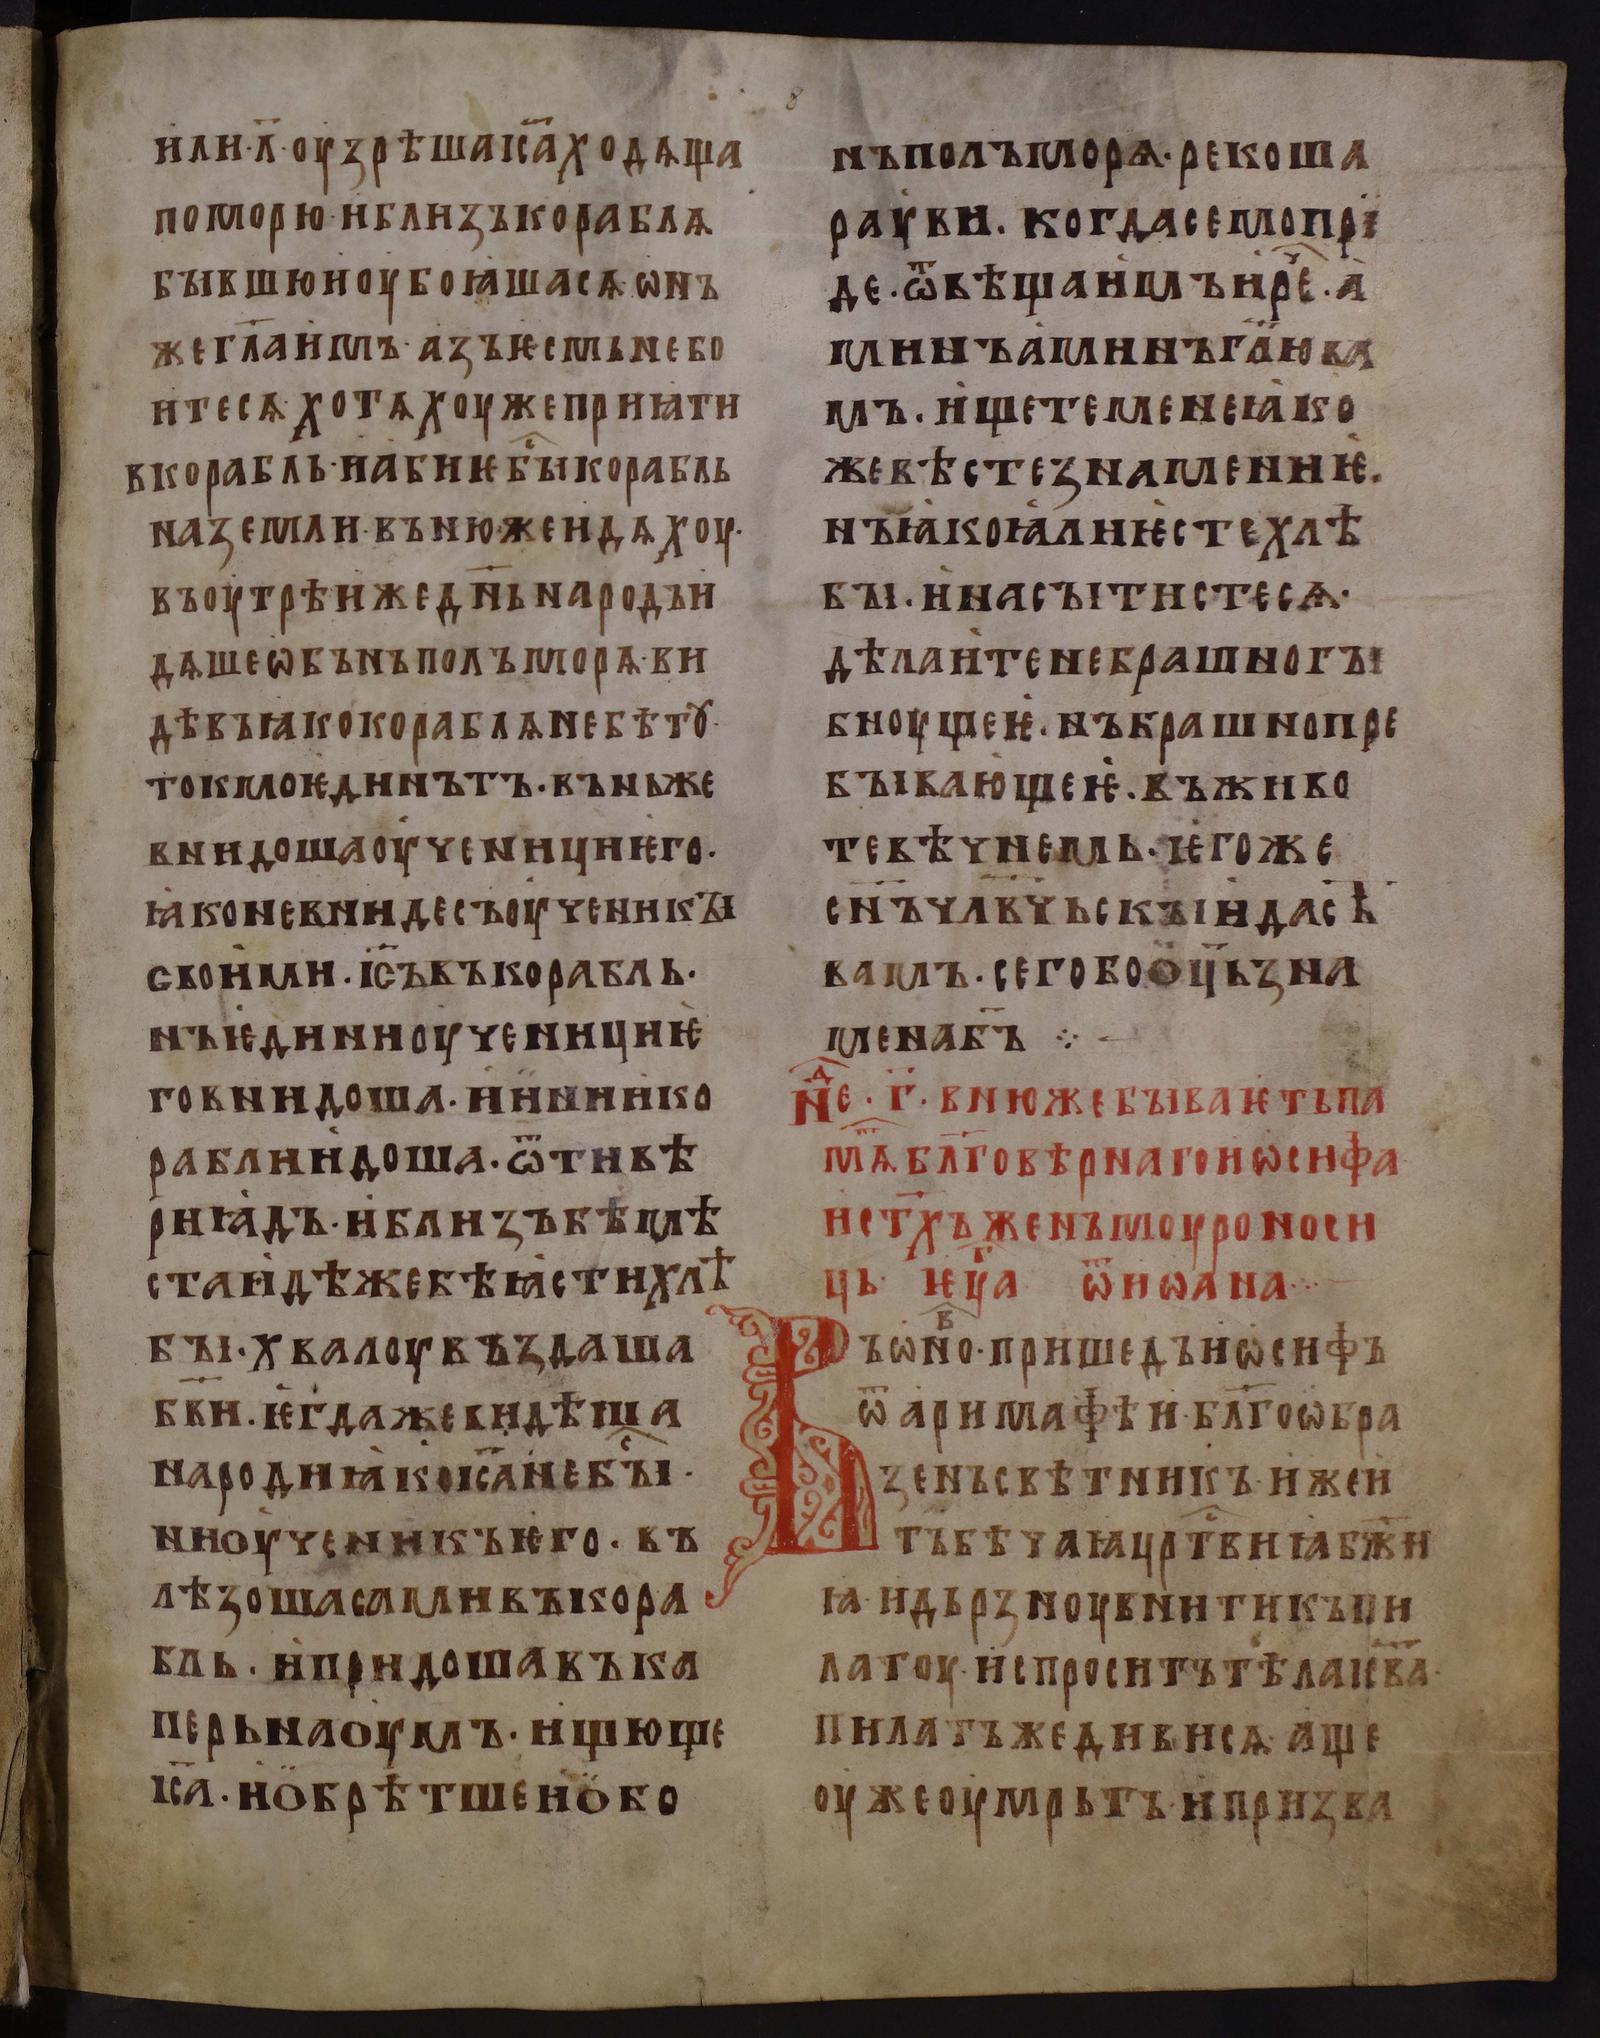 8
или·л҃·оузрѣша іс҃а ходѧща
по морю·и близъ кораблѧ
бывшю и оубоꙗша сѧ·ѡнъ
же гл҃а имъ·азъ ѥсмь не бо
ите сѧ·хотѧхоу же приꙗти
в корабль·и абиѥ бы̑ⷭ корабль
на земли·въ ню же идѧхоу·
въ оутрѣи же дн҃ь народъ и
дѧше ѡбънъполъ морѧ·ви
дѣвъ ꙗко кораблѧ не бѣ тꙋ·
токмо ѥдинъ тъ·въ нь же
внидоша оученици ѥго·
ꙗко не вниде съ оученикꙑ
своими·іс҃ъ въ корабль·
нъ ѥдини оученици ѥ
го внидоша·и ини и ко
рабли идоша·ѿ тиве
риꙗдъ·и близъ бѣ мѣ
ста идѣже бѣ ꙗсти хлѣ
бꙑ·хвалоу въздаша
бв҃и·ѥгда же видѣша
народи ꙗко іс҃а не бы̑ⷭ·
ни оученикъ ѥго·въ
лѣзоша сами въ кора
бль·и придоша въ ка
перьнаоумъ·ищюще
іс҃а·и обрѣтше и обо
нъполъ морѧ·рекоша
раувви·когда семо прі
де·ѿвѣща имъ и реⷱ·а
минъ аминъ гл҃ю ва
мъ·ищете мене ꙗко
же вѣсте знамениѥ·
нъ ꙗко ꙗли ѥсте хлѣ
бꙑ·и насꙑтисте сѧ·
дѣлаите не брашно гꙑ
бноущеѥ·нъ брашно пре
бꙑвающеѥ·въ живо
те вѣчнемь·ѥго же
сн҃ъ чл҃вчьскꙑи дасть
вамъ·сего бо оц҃ь зна
мена бъ҃ ⁘
Неⷣ·г҃·в ню же бꙑваѥть па
мⷮѧ бл҃говѣрнаго иѡсифа
и ст҃хъ женъ мюуроноси
ць ѥуⷢ҇а ѿ иѡана··
Въ ѡноⷡ·пришедъ иѡсифъ
ѿ аримафѣи·бл҃гоѡбра
зенъ свѣтникъ·иже и
тъ бѣ чаꙗ црⷭтвиꙗ бж҃и
ꙗ·и дьрзноу внити къ пи
латоу·и спроситъ тѣла іс҃ва·
пилатъ же диви сѧ·аще
оуже оумрьтъ·и призва